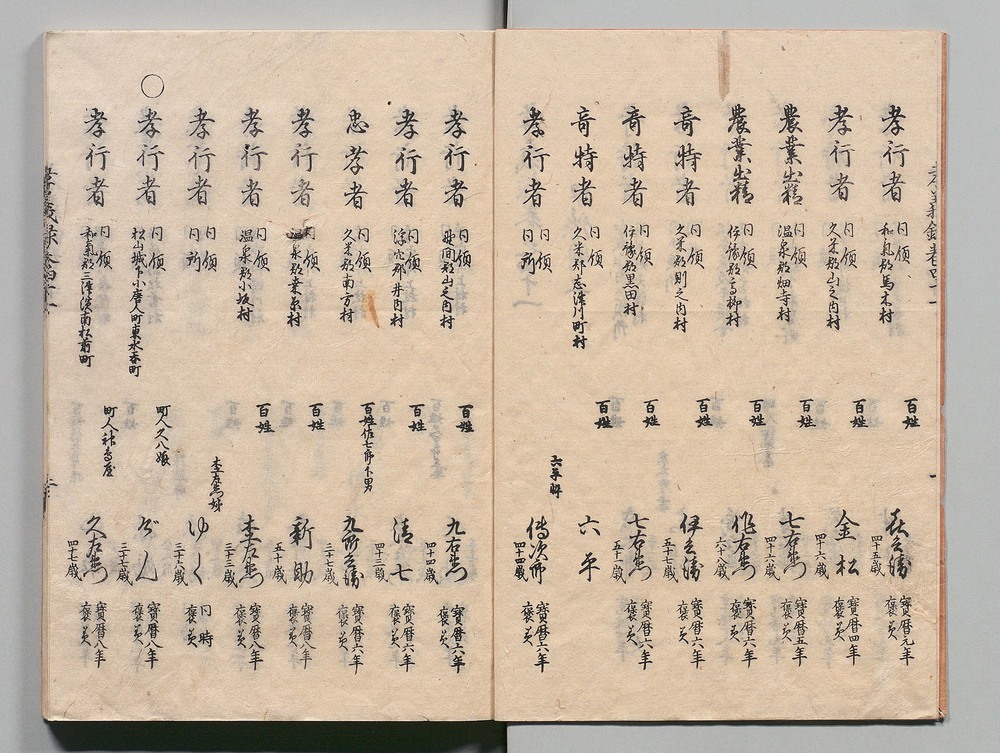 孝行者 同領 和氣郡馬木村 百姓 喜兵衛 四十五歳 寶暦元年 褒美
孝行者 同領 久米郡山之内村 百姓 金松 四十六歳 寶暦四年 褒美
農業出精 同領 温泉郡畑寺村 百姓 七右衛門 四十六歳 寶暦五年 褒美
農業出精 同領 伊豫郡高柳村 百姓 作右衛門 六十八歳 寶暦六年 褒美
奇特者 同領 久米郡則之内村 百姓 伊兵衛 五十七歳 寶暦六年 褒美
奇特者 同領 伊豫郡黒田村 百姓 七右衛門 五十二歳 寶暦六年 褒美
奇特者 同領 久米郡志津川町村 百姓 六平
孝行者 同領 同所 六平 傳次郎 四十四歳 寶暦六年 褒美
孝行者 同領 山之内村 百姓 九右衛門 四十四歳 寶暦六年 褒美
孝行者 同領 浮穴郡井内村 百姓 清七 四十三歳 寶暦六年 褒美
忠孝者 同領 久米郡南方村 百姓佐七郎下男 九郎兵衛 三十七歳 寶暦六年 褒美
孝行者 同領 温泉郡桑原村 百姓 新助 五十歳 寶暦八年 褒美
孝行者 同領 温泉郡小坂村 百姓 杢左衛門 三十三歳 寶暦八年 褒美
孝行者 同領 同所 杢左衛門姉 ゆく 三十六歳 同時 褒美
○ 孝行者 同領 松山城下小唐人町東水春町 町人久八娘 ぎん 三十七歳 寶暦八年 褒美
孝行者 同領 和氣郡三津濱南松前町 町人 久右衛門 四十七歳 寶暦八年 褒美